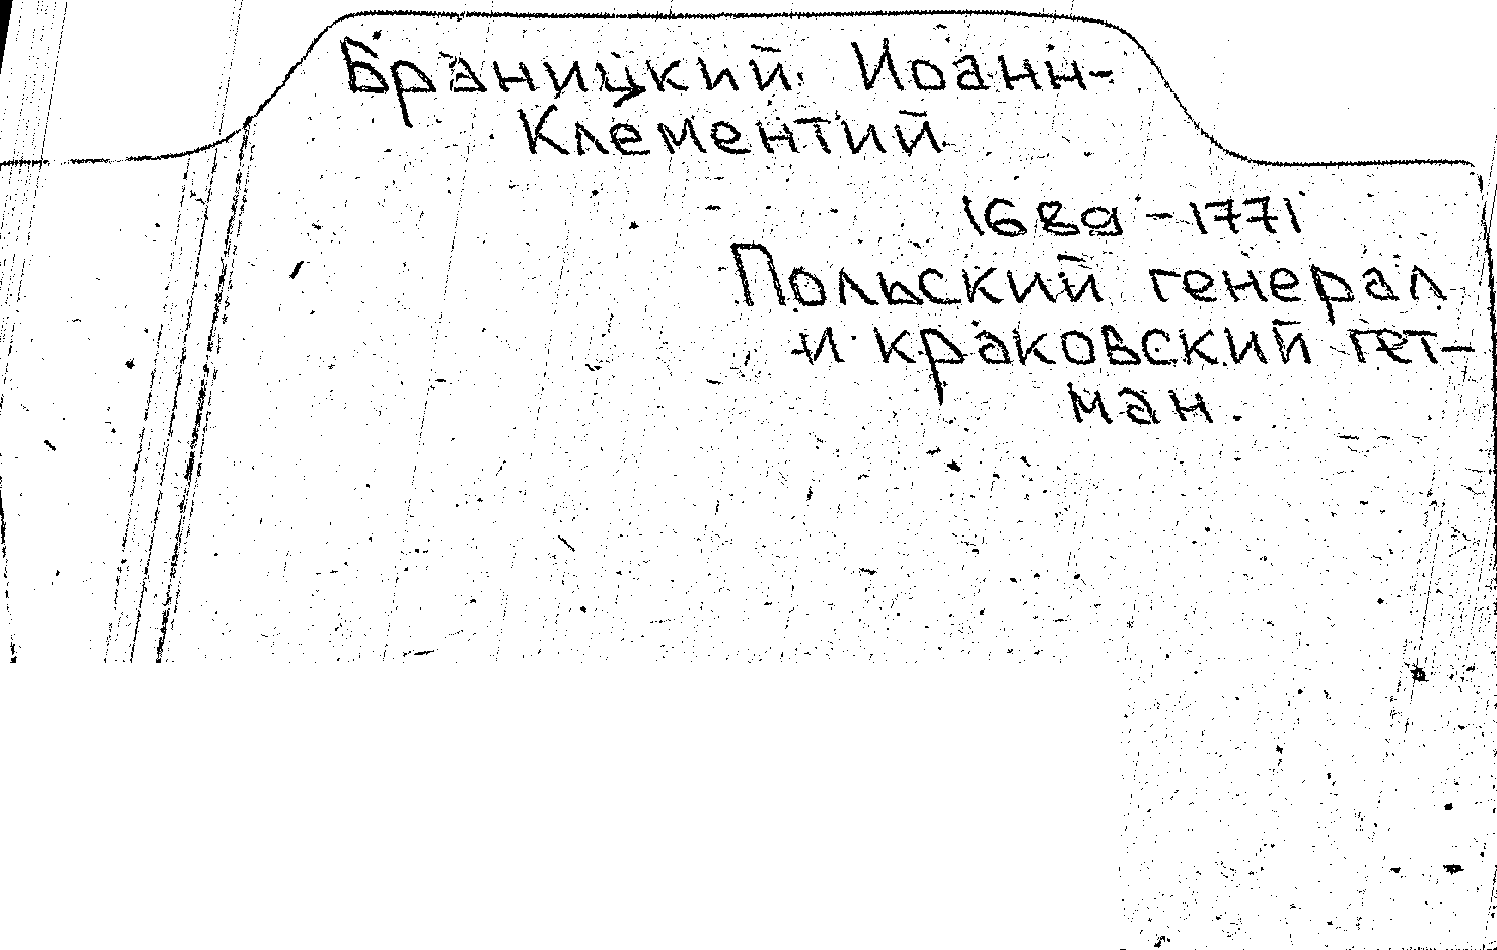 Браницкий Иоанн-
Клементий
1689-1771
Польский генерал
и краковский гет-
ман.